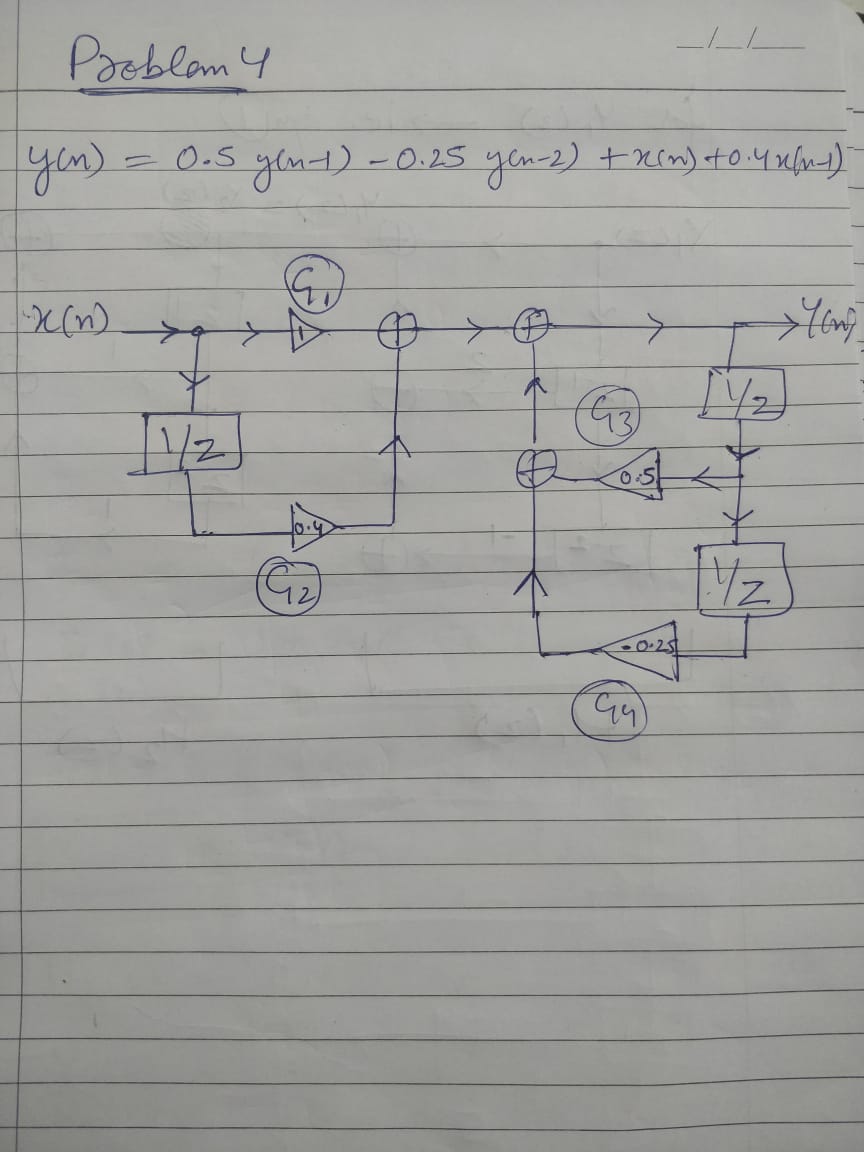 Problem 4
_/_/_
y(n) = 0.5 y(n-1) - 0.25 y(n-2) + x(n) + 0.4 x(n-1)
G1
x(n)
1
Y(n)
1/Z
G3
1/Z
0.5
0.4
G2
1/Z
-0.25
G4